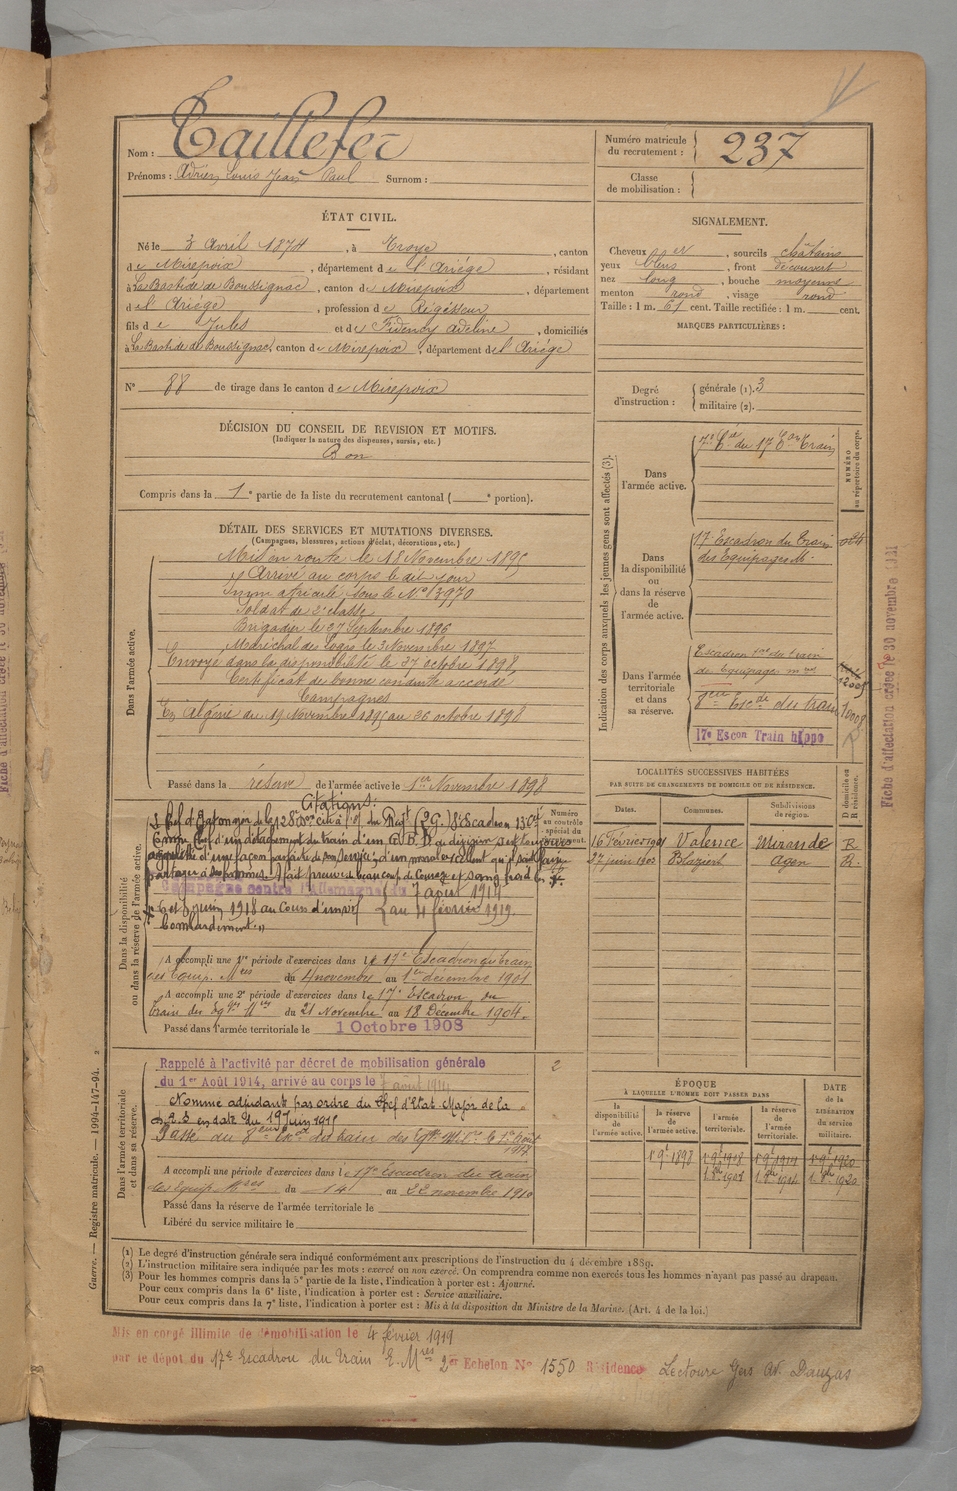 Nom : Taillefer
Prénoms : Adrien Louis Jean Paul Surnom :
Numéro matricule du recrutement : 237
Classe de mobilisation :
ÉTAT CIVIL.
Né le 3 Avril 1874, à Troye, canton
de Mirepoix, département de l'Ariége, résidant
à La Bastide de Boussignac, canton de Mirepoix, département
d el Ariége, profession de Régisseur
fils de Jules et de Fidency Adeline, domiciliés
à La Bastide de Boussignac, canton de Mirepoix, département de l'Ariége
N° 88 de tirage dans le canton de Mirepoix
DÉCISION DU CONSEIL DE REVISION ET MOTIFS.
(Indiquer la nature des dispenses, sursis, etc.)
Bon
Compris dans la 1e partie de la liste du recrutement cantonal ( e portion).
SIGNALEMENT.
Cheveux, sourcils châtains
yeux bleus, front découvert
nez long, bouche moyenne
menton rond, visage rond
Taille : 1 m. 61 cent. Taille rectifiée : 1 m. cent.
MARQUES PARTICULIÈRES :
Degré d'instruction : générale (1). 3
militaire (2).
DÉTAIL DES SERVICES ET MUTATIONS DIVERSES.
(Campagnes, blessures, actions d'éclat, décorations, etc.)
Dans l'armée active.
Mis en route le 18 Novembre 1895
Arrivé au corps le dit jour
Immatriculé sous le N° 13970
Soldat de 2e classe
Brigadier le 27 Septembre 1896
Maréchal des logis le 3 Novembre 1897
Envoyé dans la disponibilité le 27 octobre 1898
Certificat de bonne conduite accordé
Campagnes
En Algérie du 19 Novembre 1895 au 26 octobre 1898
Passé dans la réserve de l'armée active le 1er Novembre 1898
Indication des corps auxquels les jeunes gens sont affectés (3).
NUMÉRO au répertoire du corps.
Dans l'armée active.
7e Cie du 17 Eon Train
Dans la disponibilité ou dans la réserve de l'armée active.
17 Escadron du Train
des Equipages M.
Dans l'armée territoriale et dans sa réserve.
Escadron du train
des Equipages
8eme Escd du train
17e Escon Train hippo
LOCALITÉS SUCCESSIVES HABITÉES
PAR SUITE DE CHANGEMENTS DE DOMICILE OU DE RÉSIDENCE.
Dates. Communes. Subdivisions de région. D domicile ou R résidence.
16 Février 1901 Valence Mirande R
27 juin 1903 Blaziert Agen R.
Dans la disponibilité ou dans la réserve de l'armée active.
Numéro au contrôle spécial du
Citations:
d'une façon parfaite de son service, d'un moral excellent qu'il sait faire
partager à ses hommes. A fait preuve de beaucoup de Courage et sang froid
Campagne contre l'Allemagne du 7 août 1914
au 4 février 1919.
juin 1918 au Cours d'un
bombardement.
A accompli une 1re période d'exercices dans le 17e Escadron du train
des Equip. Mres du 4 novembre au 1er décembre 1901
A accompli une 2e période d'exercices dans le 17e Escadron du
train des Eqges Mres du 21 Novembre au 18 Décembre 1904.
Passé dans l'armée territoriale le 1 Octobre 1908
Dans l'armée territoriale et dans sa réserve.
Rappelé à l'activité par décret de mobilisation générale
du 1er Août 1914, arrivé au corps le 7 août 1914
Nommé adjudant par ordre du Chef d'Etat-Major de la
en date du 19 juin 1915
A accompli une période d'exercices dans le 17e Escadron du train
des Equip. Mres du 14 au 22 novembre 1910
Passé dans la réserve de l'armée territoriale le
Libéré du service militaire le
ÉPOQUE
À LAQUELLE L'HOMME DOIT PASSER DANS
la disponibilité de l'armée active. la réserve de l'armée active. l'armée territoriale. la réserve de l'armée territoriale. DATE DE LA LIBÉRATION DU service militaire.
(1) Le degré d'instruction générale sera indiqué conformément aux prescriptions de l'instruction du 4 décembre 1889.
(2) L'instruction militaire sera indiquée par les mots : exercé ou non exercé. On comprendra comme non exercés tous les hommes n'ayant pas passé au drapeau.
(3) Pour les hommes compris dans la 5e partie de la liste, l'indication à porter est : Ajourné.
Pour ceux compris dans la 6e liste, l'indication à porter est : Service auxiliaire.
Pour ceux compris dans la 7e liste, l'indication à porter est : Mis à la disposition du Ministre de la Marine. (Art. 4 de la loi.)
Guerre. — Registre matricule. — 1994-147-94.
Mis en congé illimité de démobilisation le 4 février 1919
par le dépôt du 17e Escadron du Train E. Mres 2er Echelon N° 1550 Résidence Lectoure Gers